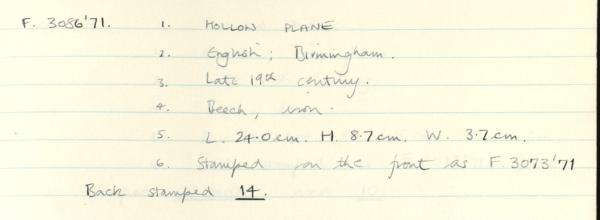 F. 3086'71. 1. HOLLOW PLANE
2. English; Birmingham.
3. Late 19th century.
4. Beech, iron.
5. L. 24.0cm. H. 8.7cm. W. 3.7cm.
6. Stamped on the front as F 3073'71
Back stamped 14.